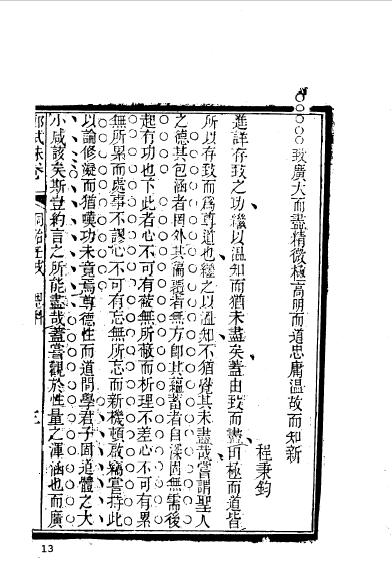 致廣大而盡精微極高明而道忠庸溫故而知新
程秉鈞
進詳存致之功繼以溫知而猶未盡矣蓋由致而盡由極而道皆
所以存致而為尊道也繼之以溫知不猶覺其未盡哉嘗謂聖人
之德其包涵者罔外其徧覆者無方即其蘊蓄者自深固無需後
起有功也下此者心不可有蔽無所蔽而析理不差心不可有累
無所累而處事不謬心不可有忘無所忘而新機頓啟竊嘗持此
以論修凝而猶嘆功未竟焉尊德性而道問學君子固道體之大
小咸該矣斯豈約言之所能盡哉蓋嘗觀於性量之渾涵也而廣
試
三
13